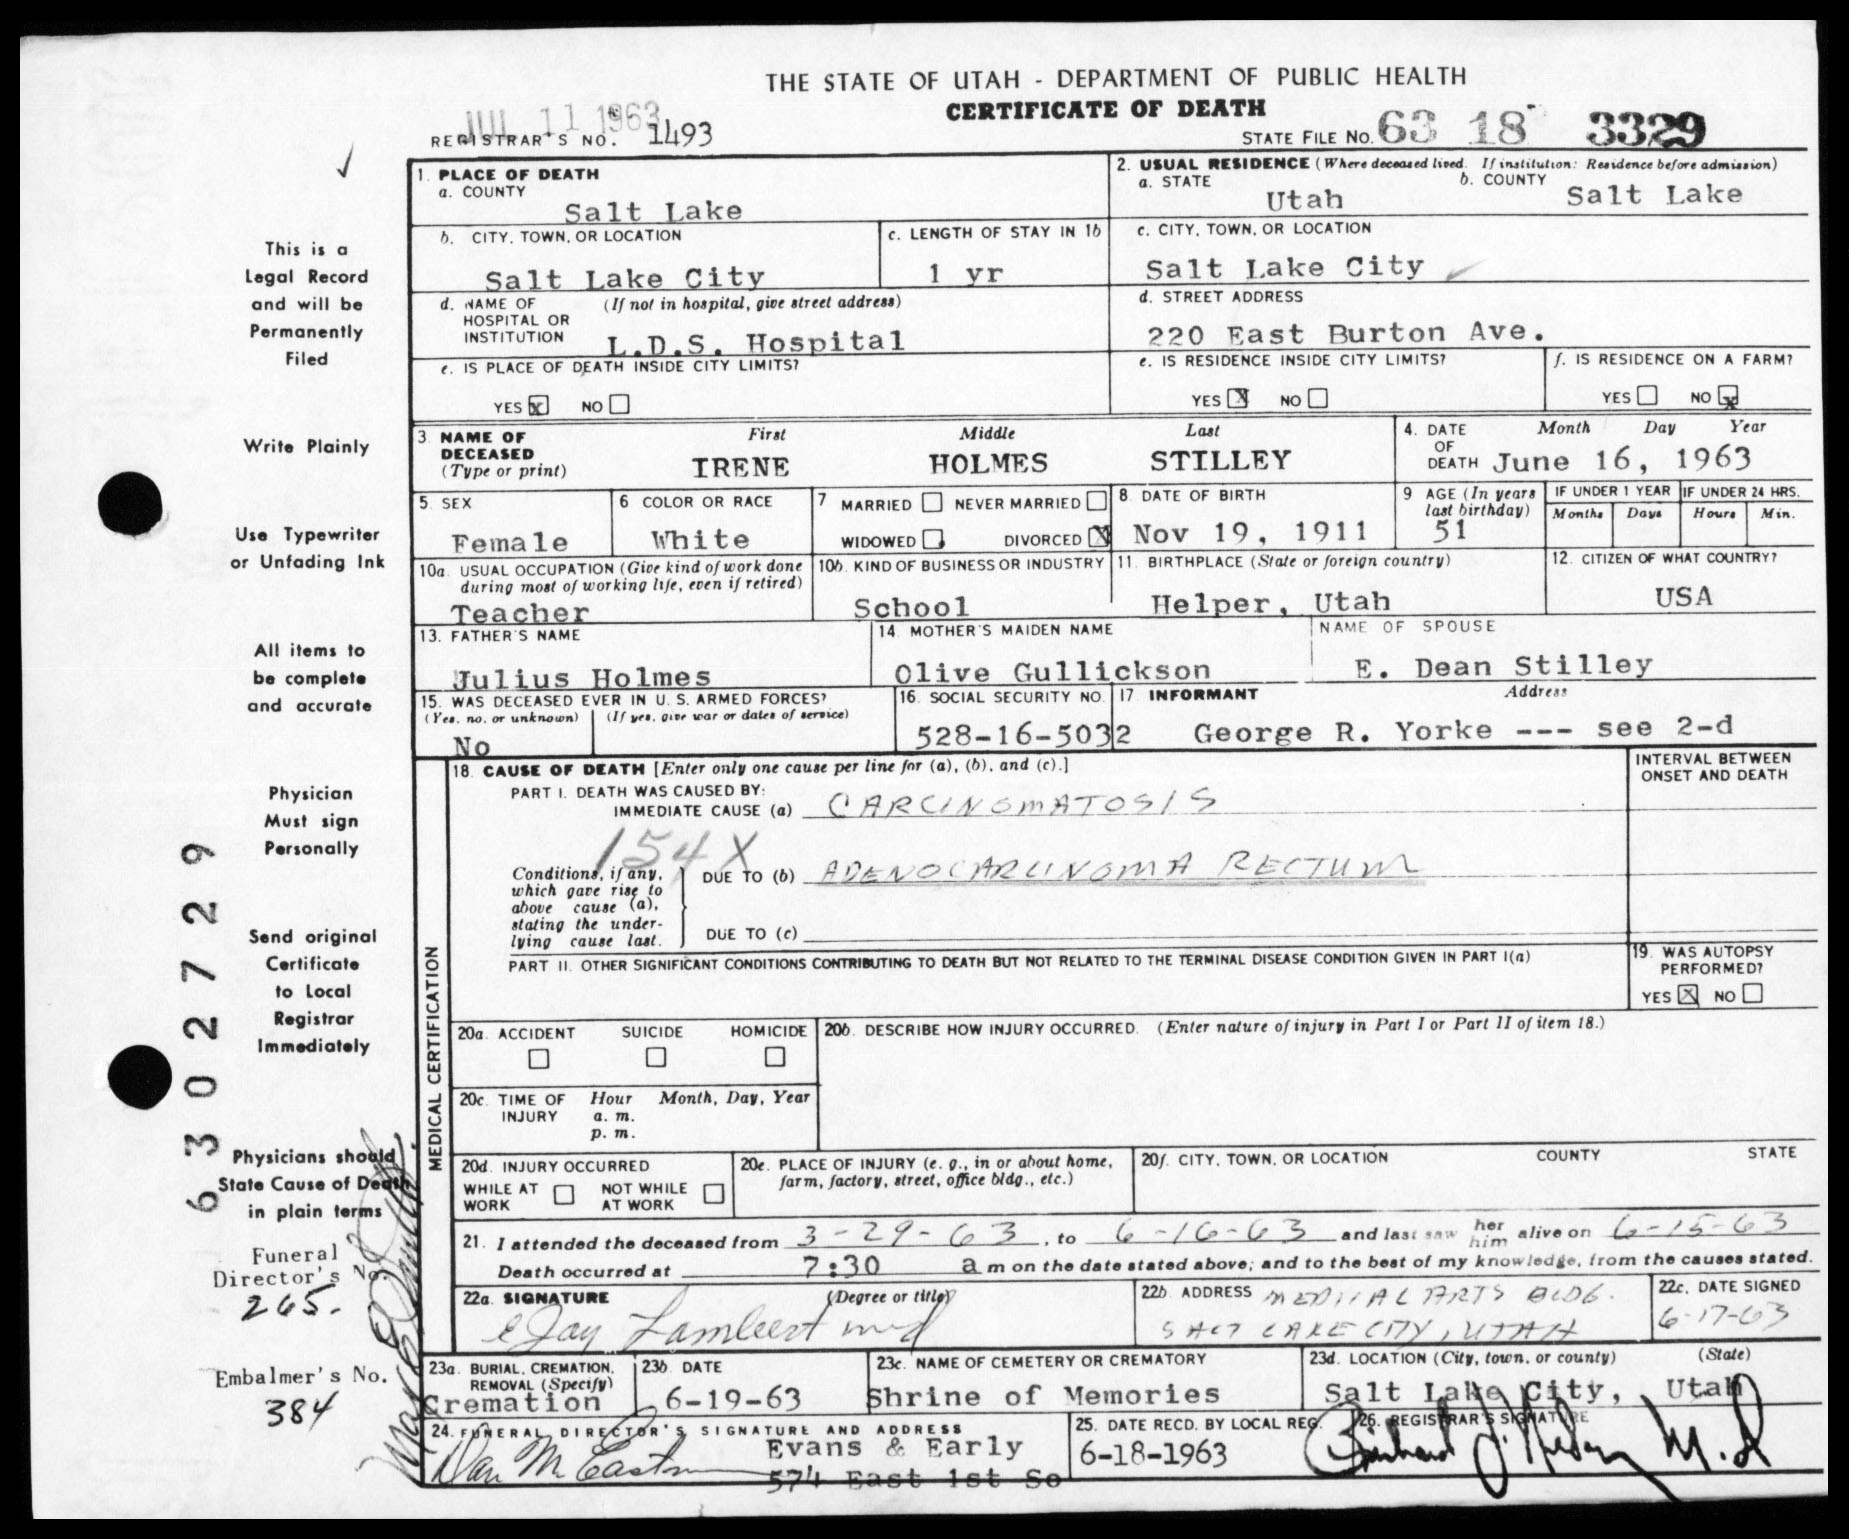 THE STATE OF UTAH - DEPARTMENT OF PUBLIC HEALTH
CERTIFICATE OF DEATH
JUL 11 1963
REGISTRAR'S NO. 1493
STATE FILE NO. 63 18 3329
This is a
Legal Record
and will be
Permanently
Filed
Write Plainly
Use Typewriter
or Unfading Ink
All items to
be complete
and accurate
Physician
Must sign
Personally
Send original
Certificate
to Local
Registrar
Immediately
Physicians should
State Cause of Death
in plain terms
Funeral
Director's No.
265.
Embalmer's No.
384
6302729
1. PLACE OF DEATH
a. COUNTY
Salt Lake
2. USUAL RESIDENCE (Where deceased lived. If institution: Residence before admission)
a. STATE Utah b. COUNTY Salt Lake
b. CITY, TOWN, OR LOCATION
Salt Lake City
c. LENGTH OF STAY IN 1b
1 yr
c. CITY, TOWN, OR LOCATION
Salt Lake City
d. NAME OF HOSPITAL OR INSTITUTION (If not in hospital, give street address)
L.D.S. Hospital
d. STREET ADDRESS
220 East Burton Ave.
e. IS PLACE OF DEATH INSIDE CITY LIMITS?
YES X NO
e. IS RESIDENCE INSIDE CITY LIMITS?
YES X NO
f. IS RESIDENCE ON A FARM?
YES NO X
3. NAME OF DECEASED (Type or print)
First Middle Last
IRENE HOLMES STILLEY
4. DATE OF DEATH Month Day Year
June 16, 1963
5. SEX
Female
6 COLOR OR RACE
White
7 MARRIED NEVER MARRIED
WIDOWED DIVORCED X
8. DATE OF BIRTH
Nov 19, 1911
9 AGE (In years last birthday)
51
IF UNDER 1 YEAR
Months Days
IF UNDER 24 HRS.
Hours Min.
10a. USUAL OCCUPATION (Give kind of work done during most of working life, even if retired)
Teacher
10b. KIND OF BUSINESS OR INDUSTRY
School
11. BIRTHPLACE (State or foreign country)
Helper, Utah
12. CITIZEN OF WHAT COUNTRY?
USA
13. FATHER'S NAME
Julius Holmes
14. MOTHER'S MAIDEN NAME
Olive Gullickson
NAME OF SPOUSE
E. Dean Stilley
15. WAS DECEASED EVER IN U. S. ARMED FORCES?
(Yes, no, or unknown) (If yes, give war or dates of service)
No
16. SOCIAL SECURITY NO.
528-16-5032
17 INFORMANT Address
George R. Yorke --- see 2-d
MEDICAL CERTIFICATION
18. CAUSE OF DEATH [Enter only one cause per line for (a), (b), and (c).]
INTERVAL BETWEEN ONSET AND DEATH
PART I. DEATH WAS CAUSED BY:
IMMEDIATE CAUSE (a) CARCINOMATOSIS
154X
Conditions, if any, which gave rise to above cause (a), stating the underlying cause last.
DUE TO (b) ADENOCARCINOMA RECTUM
DUE TO (c)
PART II. OTHER SIGNIFICANT CONDITIONS CONTRIBUTING TO DEATH BUT NOT RELATED TO THE TERMINAL DISEASE CONDITION GIVEN IN PART I(a)
19. WAS AUTOPSY PERFORMED?
YES X NO
20a. ACCIDENT SUICIDE HOMICIDE
20b. DESCRIBE HOW INJURY OCCURRED. (Enter nature of injury in Part I or Part II of item 18.)
20c. TIME OF INJURY Hour Month, Day, Year
a. m.
p. m.
20d. INJURY OCCURRED
WHILE AT WORK NOT WHILE AT WORK
20e. PLACE OF INJURY (e. g., in or about home, farm, factory, street, office bldg., etc.)
20f. CITY, TOWN, OR LOCATION COUNTY STATE
21. I attended the deceased from 3-29-63, to 6-16-63 and last saw her him alive on 6-15-63
Death occurred at 7:30 a m on the date stated above; and to the best of my knowledge, from the causes stated.
22a. SIGNATURE (Degree or title)
E Jay Lambert md
22b. ADDRESS MEDICAL ARTS BLDG.
SALT LAKE CITY, UTAH
22c. DATE SIGNED
6-17-63
23a. BURIAL, CREMATION, REMOVAL (Specify)
Cremation
23b. DATE
6-19-63
23c. NAME OF CEMETERY OR CREMATORY
Shrine of Memories
23d. LOCATION (City, town, or county) (State)
Salt Lake City, Utah
24. FUNERAL DIRECTOR'S SIGNATURE AND ADDRESS
Evans & Early
574 East 1st So
25. DATE RECD. BY LOCAL REG.
6-18-1963
26. REGISTRAR'S SIGNATURE
M.D